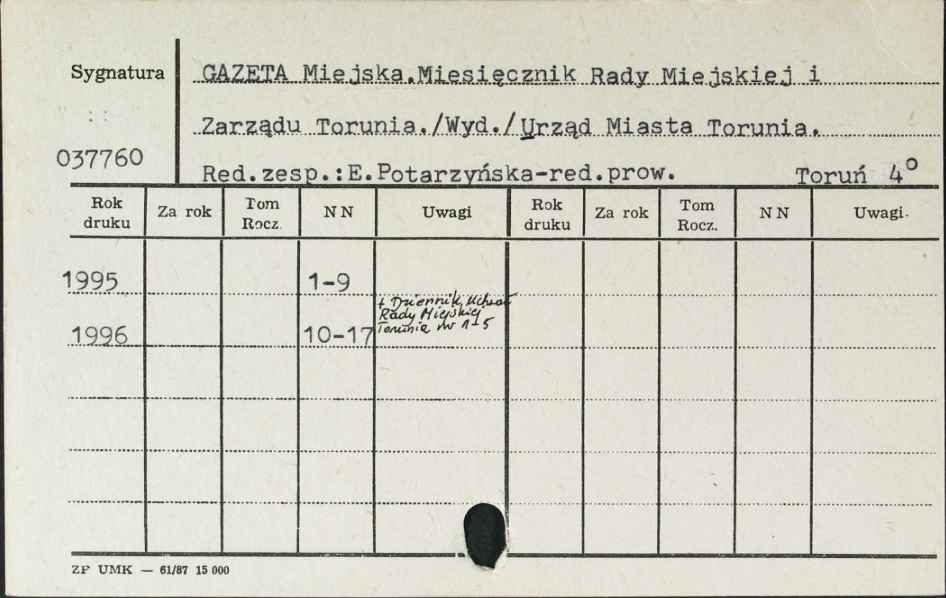 Sygnatura
GAZETA Miejska.Miesięcznik Rady Miejskiej i
Zarządu Torunia./Wyd./Urząd Miasta Torunia.
037760
Red.zesp.:E.Potarzyńska-red.prow. Toruń 4°
Rok druku Za rok Tom Rocz. NN Uwagi Rok druku Za rok Tom Rocz. NN Uwagi
1995 1-9
+ Dziennik Uchwał
Rady Miejskiej
1996 10-17 Torunia nr 1-5
ZP UMK — 61/87 15 000